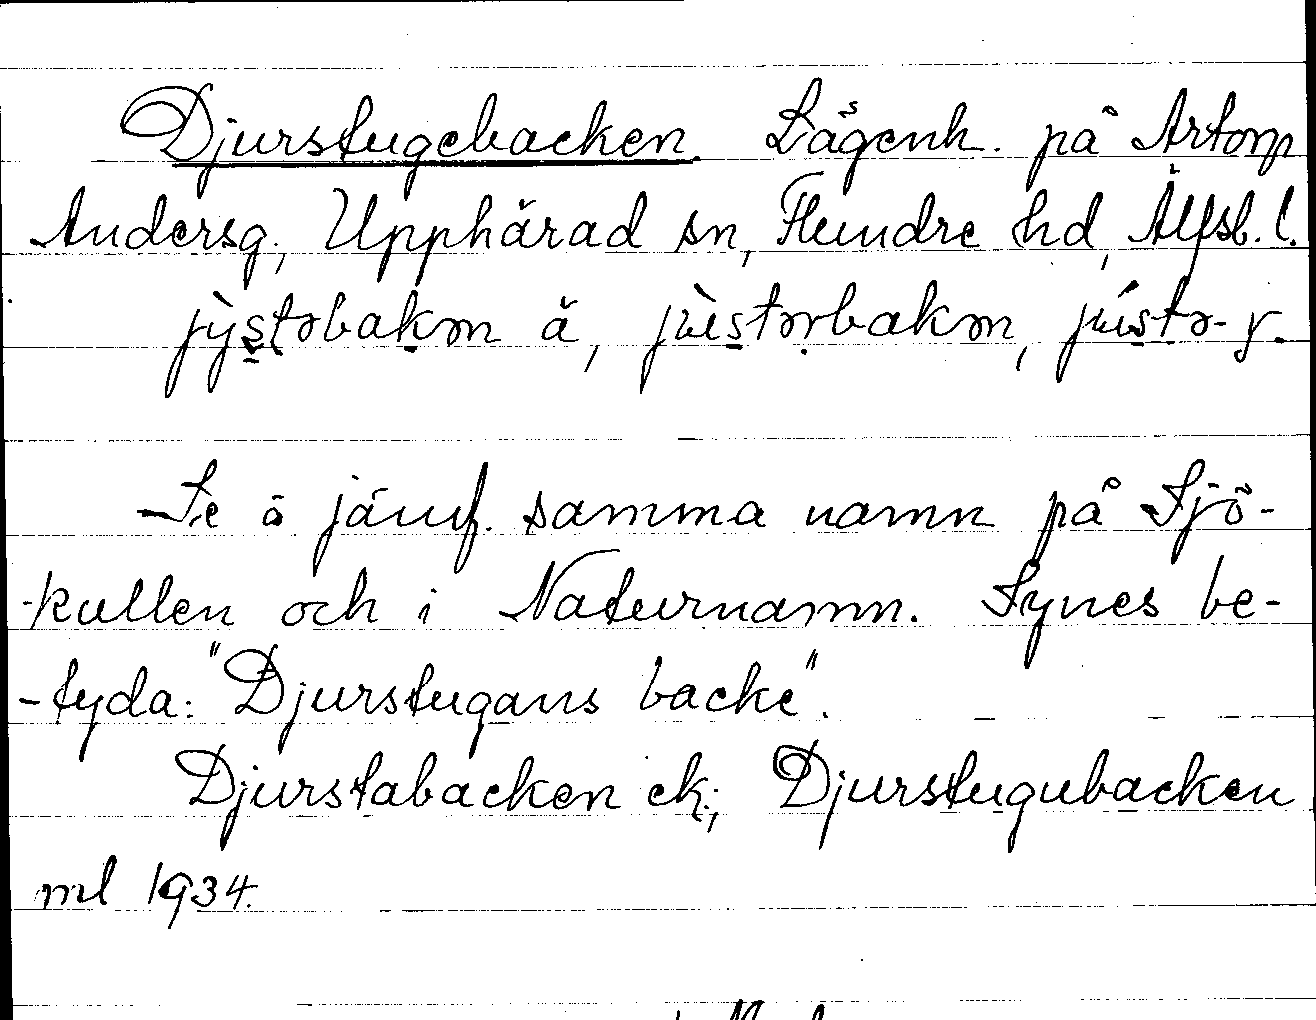 Djurstugebacken. Lägenh. på Artorp
Andersg., Upphärad sn, Flundre hd, Älfsb. l.
jỳstəbakən ä, jùstərbakən, jústə- y.
Se o jämf. samma namn på Sjö-
-kullen och i Naturnamn. Synes be-
-tyda: "Djurstugans backe".
Djurstabacken ek.; Djurstugubacken
ml 1934.